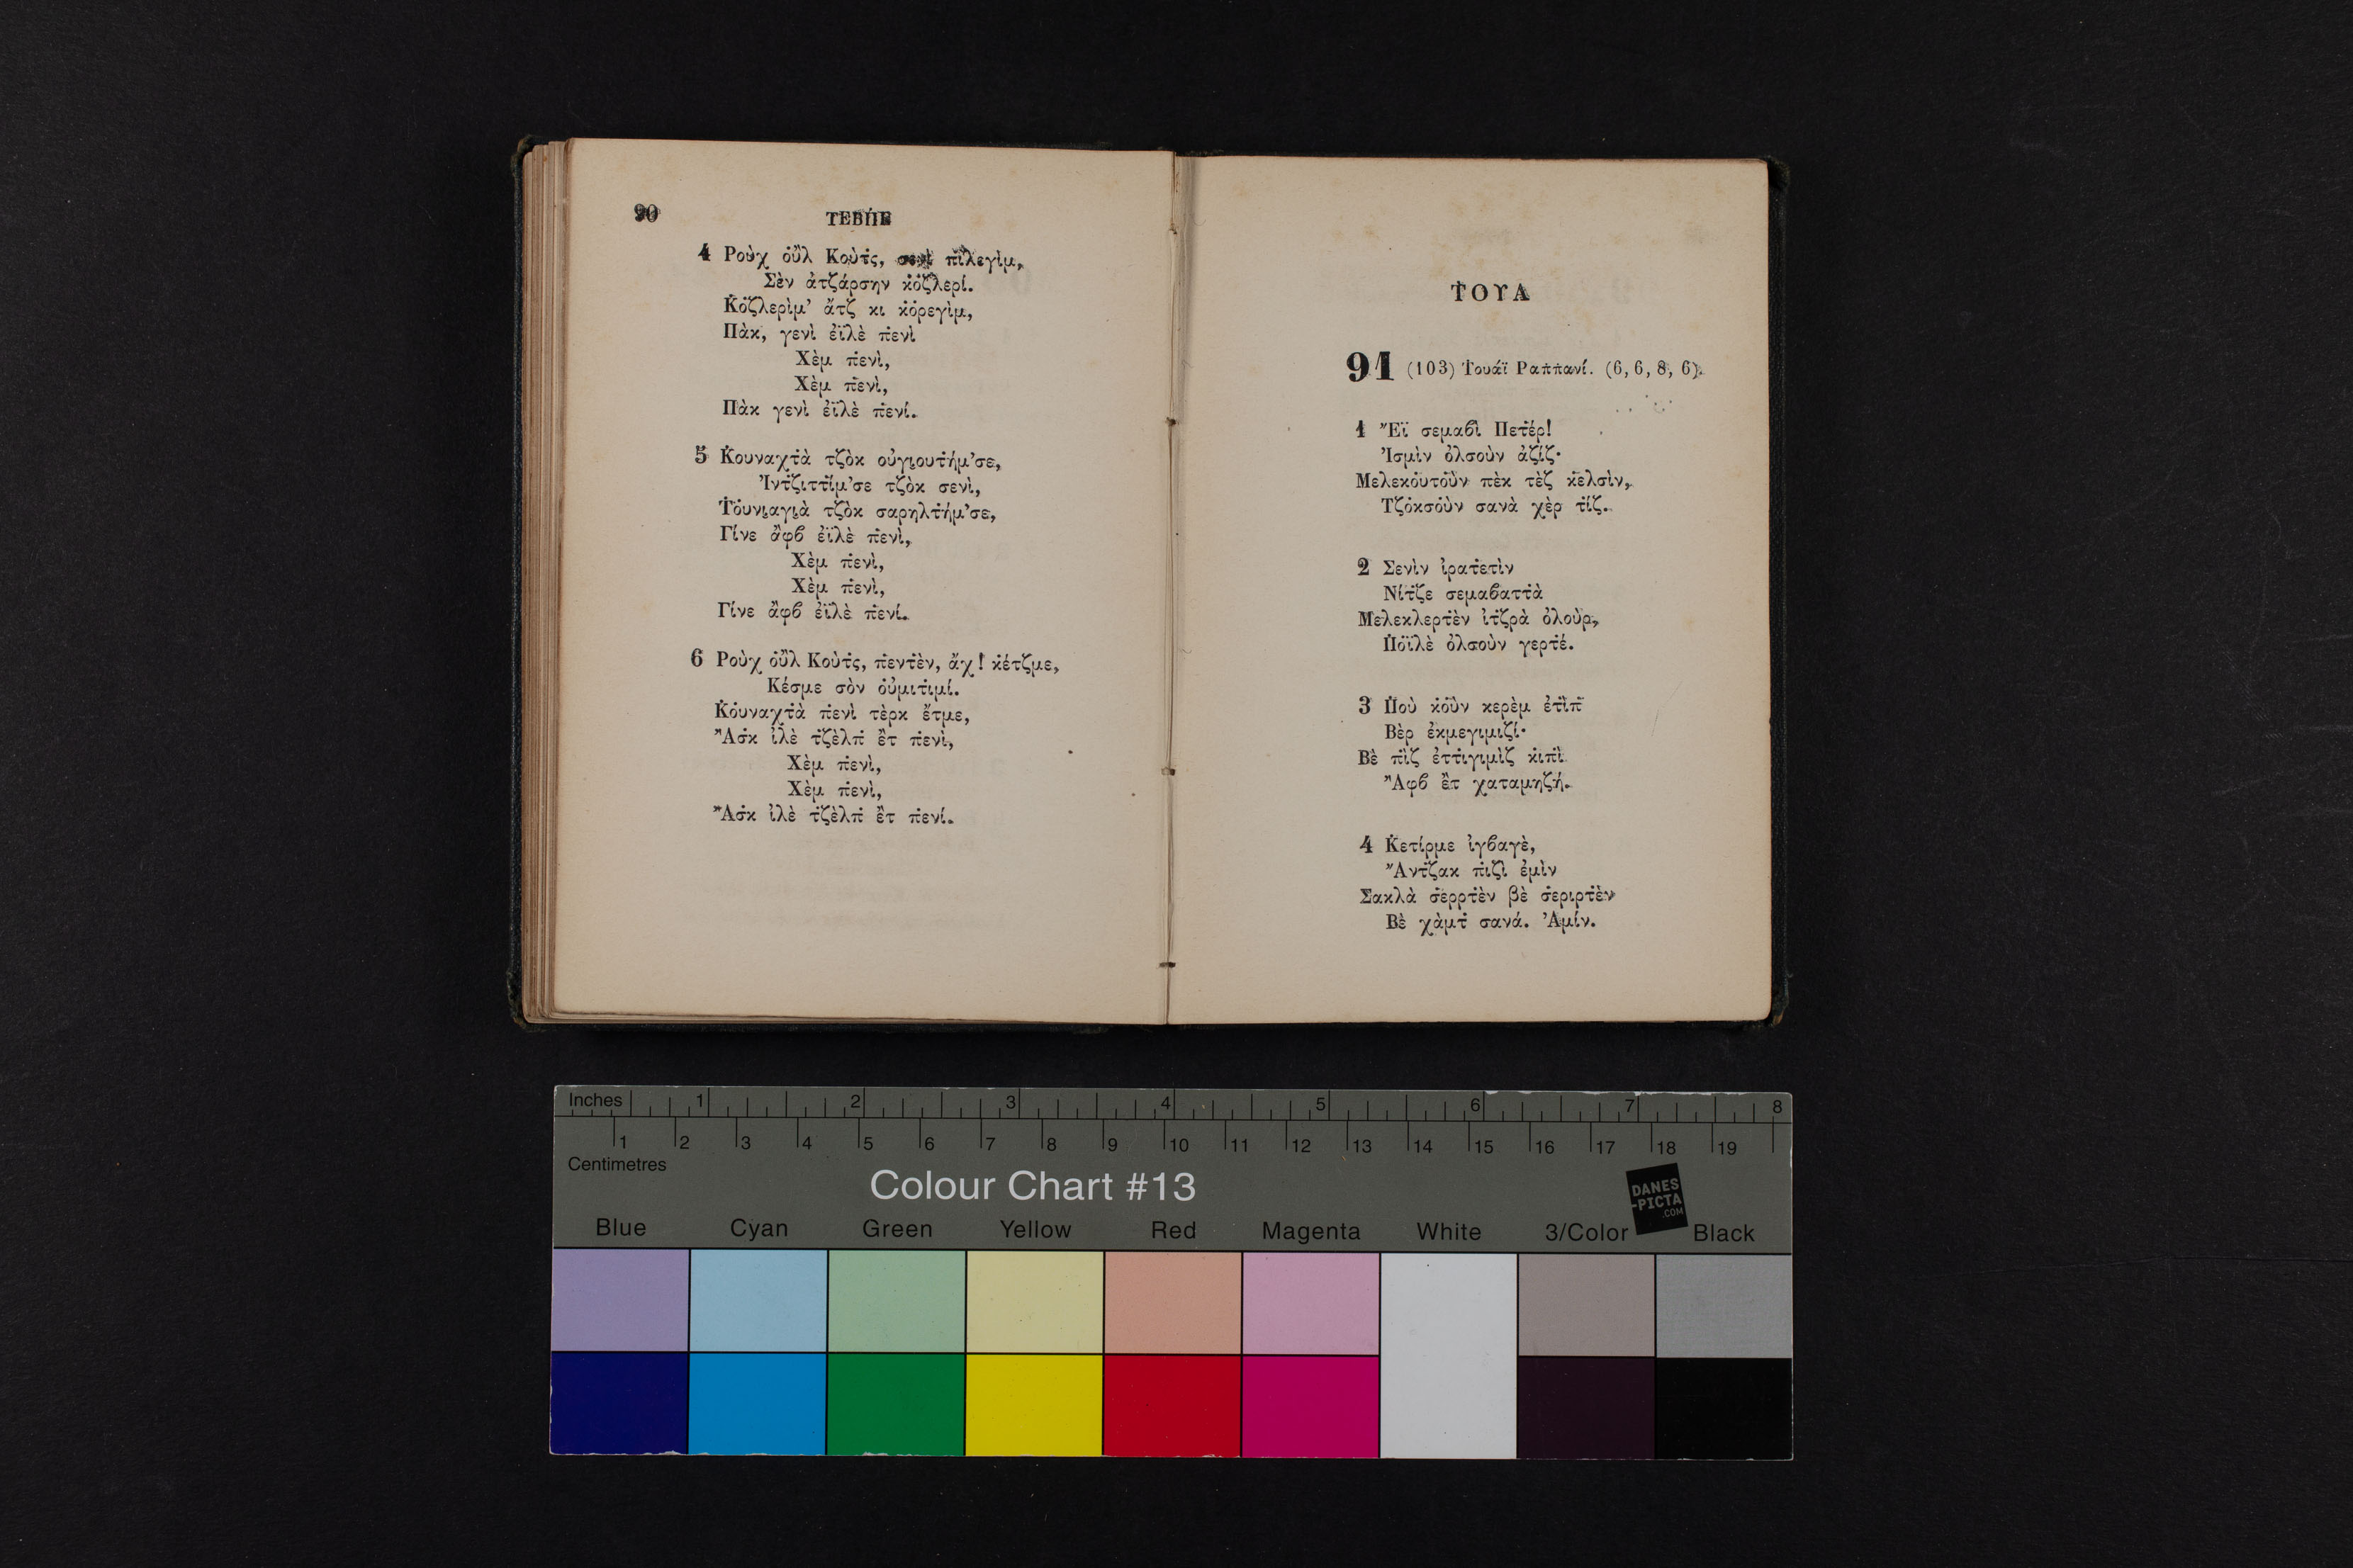 90
ΤΕΒΠΕ
4 Ροὺχ οὒλ Κοὺτς, πιλεγὶμ,
Σὲν ἀτζάρσην κὁζλερί.
Κὁζλερὶμ' ἄτζ κι κὁρεγὶμ,
Πὰκ, γενὶ ἐϊλὲ πενὶ
Χὲμ πενὶ,
Χὲμ πενὶ,
Πὰκ γενὶ ἐϊλὲ πενί.
5 Κουναχτὰ τζὸκ οὐγιουτήμ'σε,
Ἰντζιττίμ'σε τζὸκ σενὶ,
Τουνιαγιὰ τζὸκ σαρηλτήμ'σε,
Γίνε ἂφβ ἐϊλὲ πενὶ,
Χὲμ πενὶ,
Χὲμ πενὶ,
Γίνε ἂφβ ἐϊλὲ πενί.
6 Ροὺχ οὒλ Κοὺτς, πεντὲν, ἄχ! κέτζμε,
Κέσμε σὸν οὐμιτιμί.
Κουναχτὰ πενὶ τὲρκ ἔτμε,
Ἂσκ ἰλὲ τζὲλπ ἒτ πενὶ,
Χὲμ πενὶ,
Χὲμ πενὶ,
Ἂσκ ἰλὲ τζὲλπ ἒτ πενί.
ΤΟΥΑ
91 (103) Τουάϊ Ραππανί. (6, 6, 8, 6).
1 Ἔϊ σεμαβὶ Πετέρ!
Ἰσμὶν ὀλσοὺν ἀζίζ·
Μελεκουτοὺν πὲκ τὲζ κελσὶν,
Τζὁκσοὺν σανὰ χὲρ τίζ.
2 Σενὶν ἰρατετὶν
Νίτζε σεμαβαττὰ
Μελεκλερτὲν ἰτζρὰ ὀλοὺρ,
Πὁϊλὲ ὀλσοὺν γερτέ.
3 Ποὺ κοὺν κερὲμ ἐτὶπ
Βὲρ ἐκμεγιμιζί·
Βὲ πὶζ ἐττιγιμὶζ κιπὶ
Ἂφβ ἒτ χαταμηζή.
4 Κετίρμε ἰγβαγὲ,
Ἄντζακ πιζὶ ἐμὶν
Σακλὰ σερρτὲν βὲ σεριρτὲν
Βὲ χὰμτ σανά. Ἀμίν.
Inches 1 2 3 4 5 6 7 8
1 2 3 4 5 6 7 8 9 10 11 12 13 14 15 16 17 18 19
Centimetres
Colour Chart #13
DANES
-PICTA
.COM
Blue Cyan Green Yellow Red Magenta White 3/Color Black